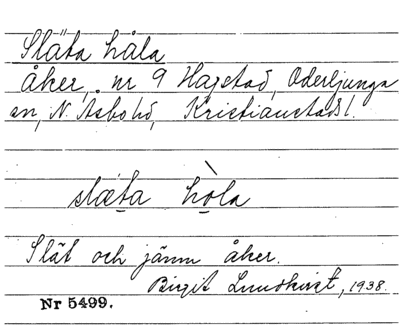 Släta håla
Åker, nr 9 Hagstad, Oderljunga
sn, N. Åsbo hd, Kristianstads l.
slæta hòla
Slät och jämn åker.
Birgit Lundkvist, 1938.
Nr 5499.